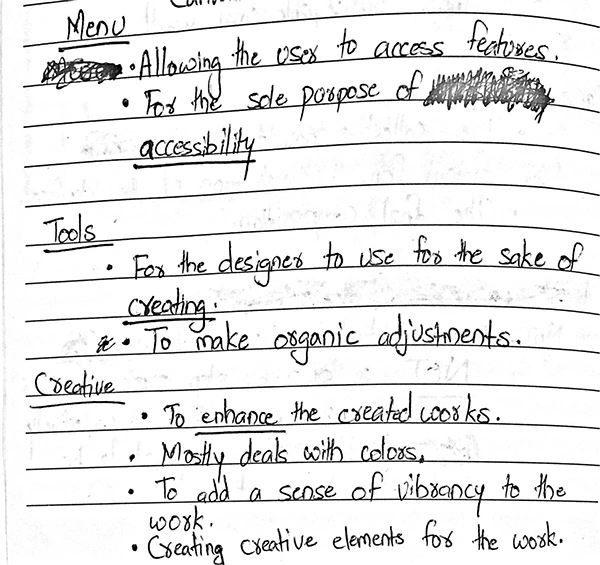 Menu
• Allowing the user to access features.
• For the sole porpose of
accessibility
Tools
• For the designer to use for the sake of
creating.
• To make organic adjustments.
Creative
• To enhance the created works.
• Mostly deals with colors,
• To add a sense of vibrancy to the
work.
• Creating creative elements for the work.